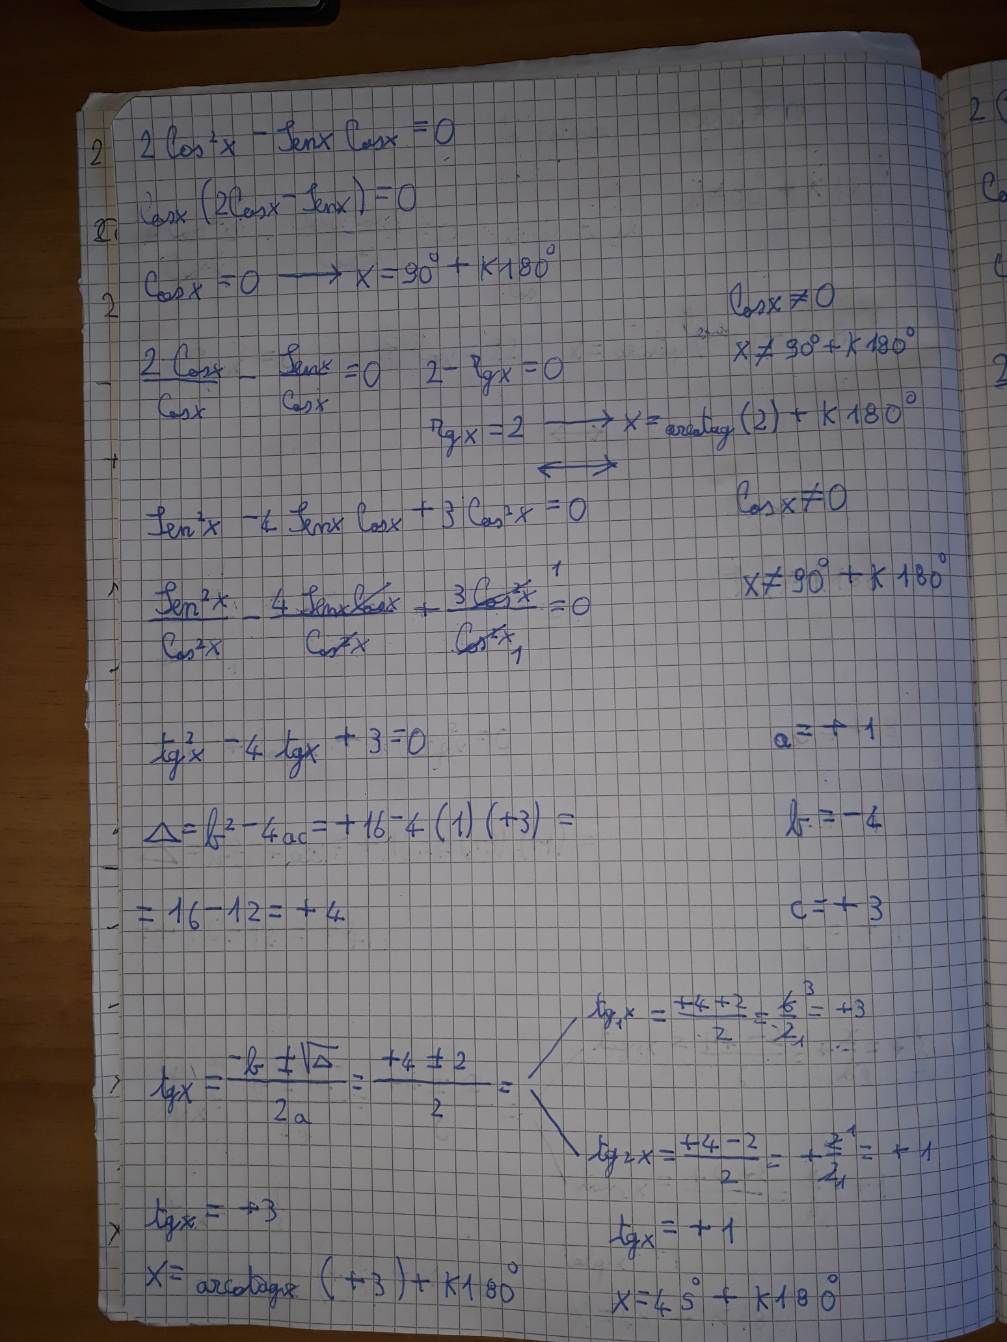 2 Cos²x - Senx Cosx = 0
Cosx (2Cosx - Senx) = 0
Cosx = 0 ⟶ x = 90° + K180°
Cosx ≠ 0
x ≠ 90° + K180°
2 Cosx/Cosx - Senx/Cosx = 0 2 - tgx = 0
tgx = 2 ⟶ x = arcotag (2) + K180°
⟷
Sen²x - 4 Senx Cosx + 3 Cos²x = 0 Cosx ≠ 0
x ≠ 90° + K180°
Sen²x/Cos²x - 4 Senx Cosx/Cos²x + 3 Cos²x 1/Cos²x 1 = 0
tg²x - 4 tgx + 3 = 0 a = + 1
Δ = b² - 4ac = +16 - 4 (1) (+3) = b = -4
= 16 - 12 = + 4 c = + 3
tg₁x = +4+2/2 = 6 3/2 1 = +3
tgx = -b ± √Δ/2a = +4 ± 2/2 =
tg2x = +4-2/2 = + 2 1/2 1 = + 1
tgx = +3 tgx = + 1
x = arcotagx (+3) + K180° x = 45° + K180°
2
2
2
2
2